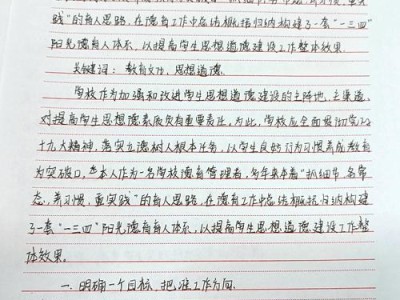 践”的育人思路,在德育工作中总结概括归纳构建了一套“一三四”
阳光德育人体系,以提高学生思想道德建设工作整体效果。
关键词:教育文件,思想道德
学校作为加强和改进学生思想道德建设的主阵地、主渠道,
对提高学生思想德素质负有重要责任,为此,学校应全面贯彻党
十九大精神,落实立德树人根本任务,以学生良好行为习惯养成教育
为突破口,本人作为一名学校德育管理者,多年来本着“抓细节、名常
态、养习惯、重实践”的育人思路,在德育工作中总结概括归纳构建
了一套“一三四”阳光德育育人体系,以提高学生思想道德建设工作整
体效果。
一、明确一个目标,把准工作方向